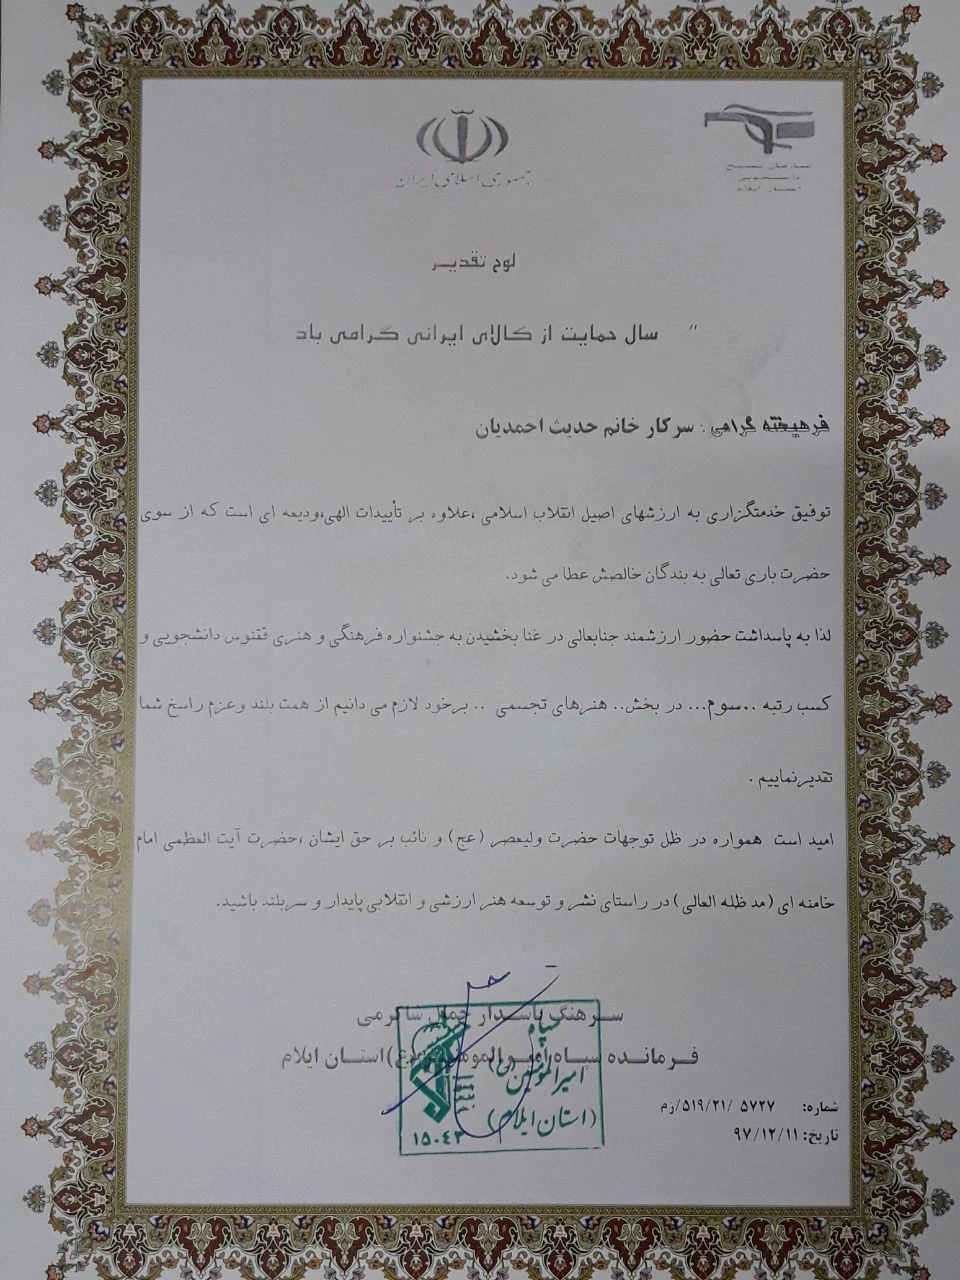 جمهوری اسلامی ایران
سازمان بسیج
دانشجویی
استان ایلام
لوح تقدیر
" سال حمایت از کالای ایرانی گرامی باد
فرهیخته گرامی : سرکار خانم حدیث احمدیان
توفیق خدمتگزاری به ارزشهای اصیل انقلاب اسلامی ،علاوه بر تأییدات الهی،ودیعه ای است که از سوی
حضرت باری تعالی به بندگان خالصش عطا می شود.
لذا به پاسداشت حضور ارزشمند جنابعالی در غنا بخشیدن به جشنواره فرهنگی و هنری ققنوس دانشجویی و
کسب رتبه ..سوم... در بخش.. هنرهای تجسمی .. برخود لازم می دانیم از همت بلند وعزم راسخ شما
تقدیرنماییم .
امید است همواره در ظل توجهات حضرت ولیعصر (عج) و نائب بر حق ایشان ،حضرت آیت العظمی امام
خامنه ای (مد ظله العالی) در راستای نشر و توسعه هنر ارزشی و انقلابی پایدار و سربلند باشید.
سرهنگ پاسدار جمال شاکرمی
فرمانده سپاه امیرالمومنین(ع)استان ایلام
سپاه
امیرالمؤمنین (ع)
(استان ایلام)
۱۵۰۴۳
شماره: ۵۷۲۷ /۵۱۹/۲۱/زم
تاریخ: ۹۷/۱۲/۱۱